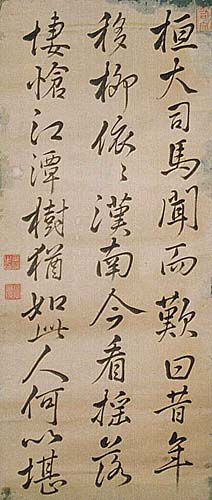 桓大司馬聞而歎曰昔年
移柳依〻漢南今看揺落
悽愴江潭樹猶如此人何以堪